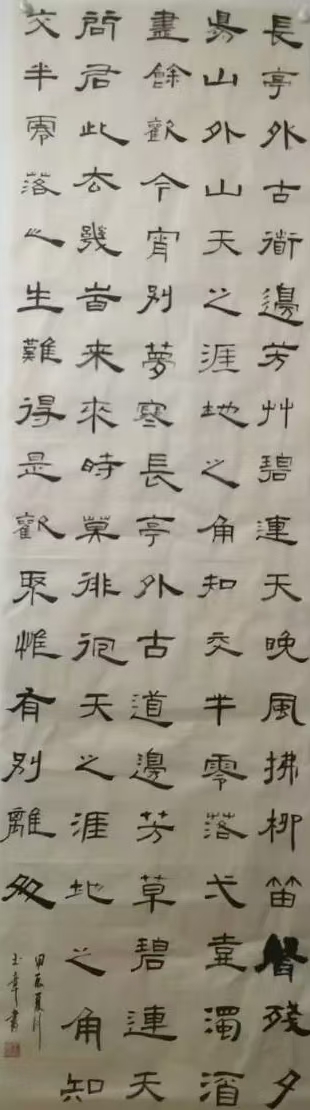 長亭外古衜邊芳艸碧連天晚風拂柳笛聲殘夕
昜山外山天之涯地之角知交半零落弌壺濁酒
盡餘歡今宵別夢寒長亭外古道邊芳草碧連天
問君此去幾旹來來時莫徘徊天之涯地之角知
交半零落人生難得是歡聚惟有別離多
甲辰夏月
玉章書